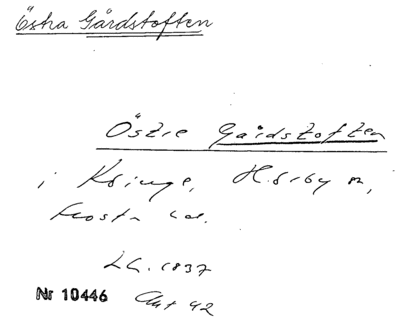 Östra Gårdstoften
Östre Gårdstoften
i Kninge, Hörby sn,
Frosta hd.
LG. 1837
Akt 42
Nr 10446